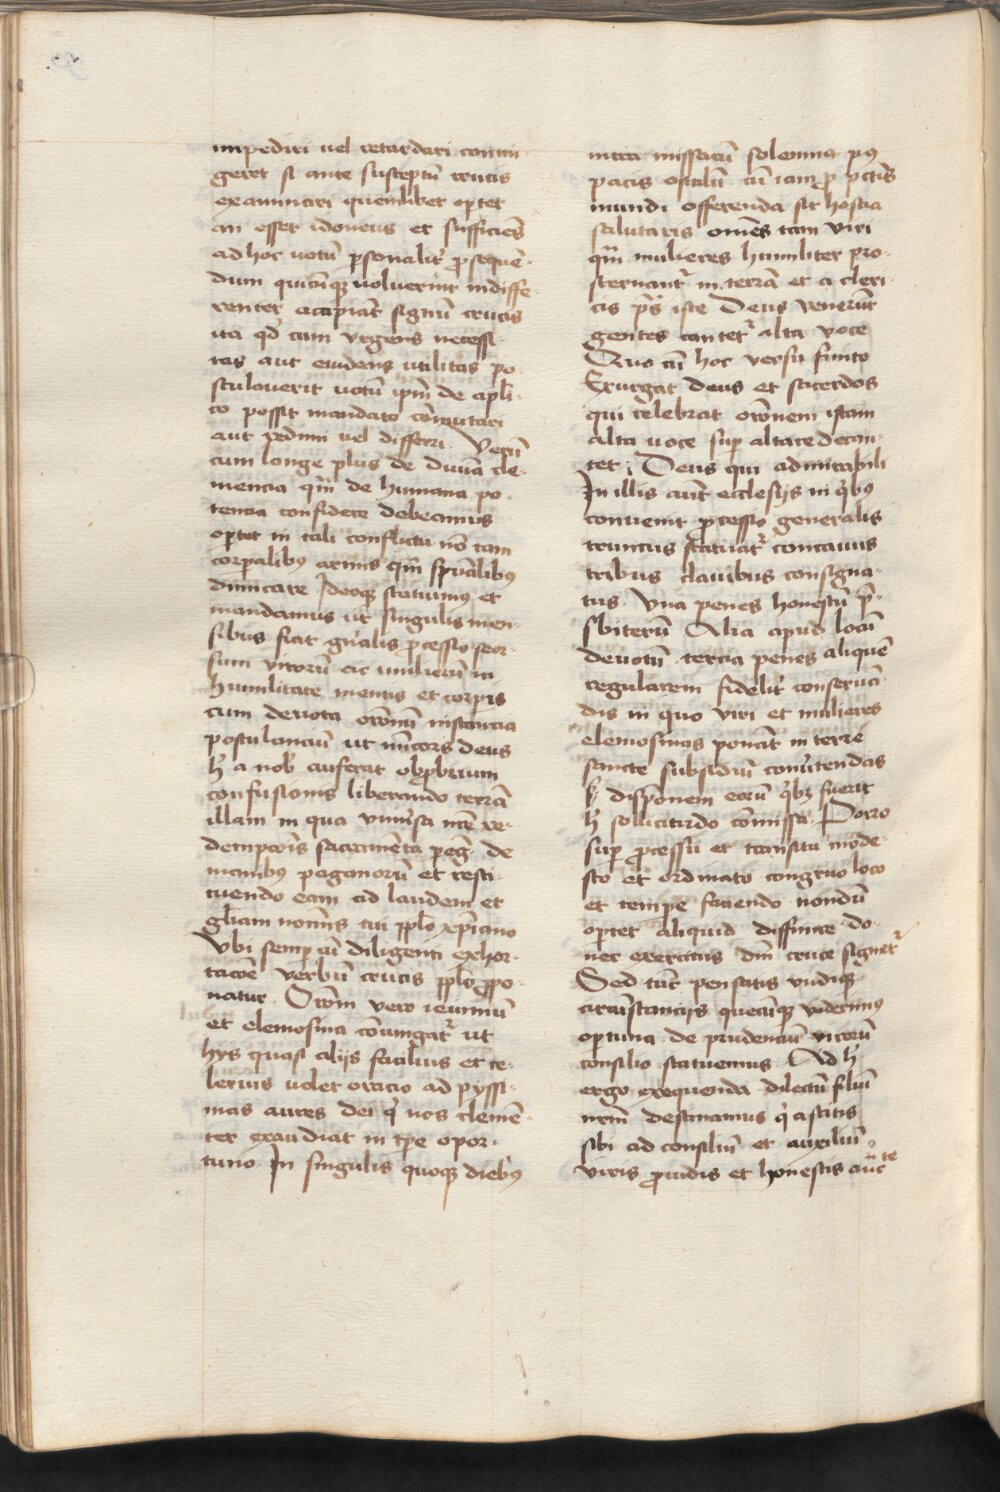 impediri uel retardari contin
geret si ante susceptū crucis
examinari quemlibet oꝑtet
an esset idoneus et sufficiēs
ad hoc uotū ꝑsonalit᷑ ꝓsequē-
dum quicūqꝫ voluerint indiffe-
renter accipiāt signū crucis
ita qd̛ cum vrgens necessi-
tas aut euidens utilitas po-
stulauerit uotū ip̄m de apl̄i-
co possit mandato cōmutari
aut redimi uel differri. Verū
cum longe plus de diuīa cle-
mencia qm̄ de humana po-
tencia confidere debeamus
oꝑtet in tali conflictu nō tam
corꝑalibꝰ armis qm̄ sp̄ualibꝰ
dimicare Ideoqꝫ statuimꝰ et
mandamus ut singulis men-
sibus fiat gn̄alis ꝓcessio seor-
sum virorū ac mulierū in
humilitate mentis et corꝑis
cum deuota orōnū instancia
postulanciū ut mīcors deus
h̄ a nob̛ auferat obꝓbrium
confusionis liberando terrā
illam in qua vniưsa nr̄e re-
dempcōīs sacramēta ꝑeḡ de
manibꝰ paganorū et resti-
tuendo eam ad laudem et
gl̄iam nomīs sui ppl̄o xp̄iano
Vbi semꝑ cū diligenti exhor-
tacōē verbū crucis ppl̄o ꝓpo-
natur. Orōni vero ieiuniū
et elemosina cōiungat᷑ ut
hys quasi alijs facilius et ce-
lerius uolet oracio ad pyssi-
mas aures dei q̇ nos clemē-
ter exaudiat in tp̄e opor-
tuno In singulis quoqꝫ diebꝰ
intra missarū solemnia pꝰ
pacis osculū cū iam ꝓ pctīs
mundi offerenda sit hostia
salutaris omēs tam viri
qm̄ mulieres humiliter pro-
sternant᷑ in terrā et a cleri-
cis ps̄ iste Deus venerūt
gentes cantet᷑ alta voce
Quo cū hoc versu finito
Exurgat deus et sacerdos
qui celebrat orōnem istam
alta uoce suꝑ altare decan-
tet ; Deus qui admirabili
In illis aut̄ ecclesijs in qͥbꝰ
conuenit ꝓcessio generalis
truncus statuat᷑ concauus
tribus clauibus consigna-
tus. Vna penes honestū p̄-
sbiterū Alia apud locū
deuotū tercia penes aliquē
regularem fidelit᷑ conseruā
dis in quo viri et mulieres
elemosinas ponāt in terre
sancte subsidiū conưtendas
ẜ disposīonem eorū qͥbꝫ fuerit
h̄ sollicitudo cōmissa. Porro
suꝑ ꝓcessu et transitu mode-
sto et ordinato congruo loco
et tempe faciendo nondū
oꝑtet aliquid diffinire. do-
nec exercitus dn̄i cruce signet᷑
Sed tūc pensatis vndiqꝫ
circūstancijs quecūqꝫ viderimꝰ
oꝑtuna de prudenciū virorū
consilio statuemus. Ad h̄
ergo exequenda dilectū filiū
nr̄m destinamus q̇ ascitis
sibi ad consiliū et auxiliū
viris ꝓuidis et honestis aucte